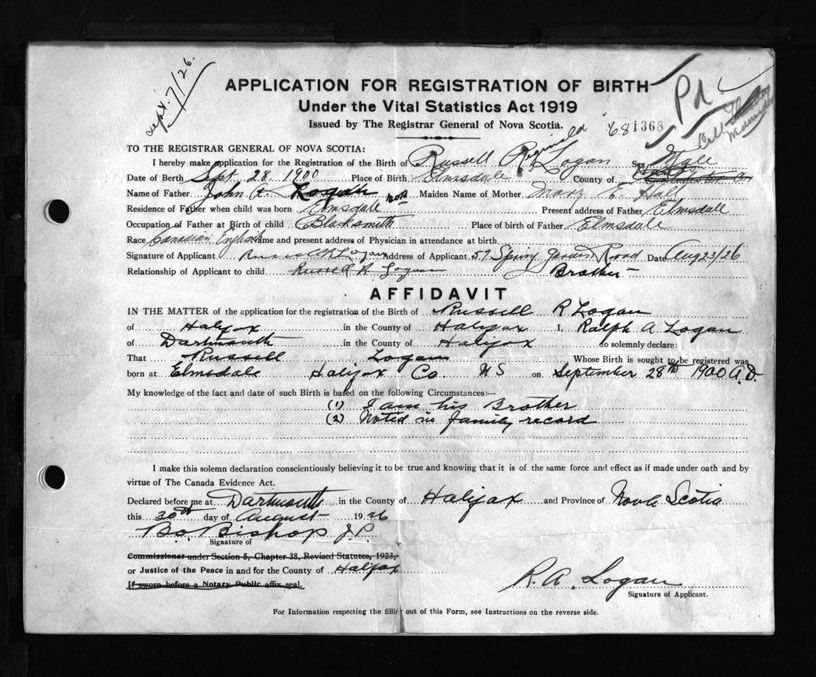 Sept. 7/26.
APPLICATION FOR REGISTRATION OF BIRTH
Under the Vital Statistics Act 1919
Issued by The Registrar General of Nova Scotia.
Pd
681368
TO THE REGISTRAR GENERAL OF NOVA SCOTIA:
I hereby make application for the Registration of the Birth of Russell Reginald Logan Sex Male
Date of Birth Sept. 28. 1900 Place of Birth Elmsdale County of
Name of Father John Logan Maiden Name of Mother Mary E.
Residence of Father when child was born Elmsdale Present address of Father Elmsdale
Occupation of Father at Birth of child Blacksmith Place of birth of Father Elmsdale
Race Canadian English Name and present address of Physician in attendance at birth
Signature of Applicant Russell R Logan Address of Applicant 57 Spring Garden Road Date Aug 23/26
Relationship of Applicant to child Russell R. Logan Brother
AFFIDAVIT
IN THE MATTER of the application for the registration of the Birth of Russell R Logan
of Halifax in the County of Halifax I, Ralph A Logan
of Dartmouth in the County of Halifax do solemnly declare:
That Russell Logan Whose Birth is sought to be registered was
born at Elmsdale Halifax Co. N S on September 28th 1900 A.D.
My knowledge of the fact and date of such Birth is based on the following Circumstances:—
(1) I am his Brother
(2) Noted in family record
I make this solemn declaration conscientiously believing it to be true and knowing that it is of the same force and effect as if made under oath and by
virtue of The Canada Evidence Act.
Declared before me at Dartmouth in the County of Halifax and Province of Nova Scotia
this 30th day of August 1926
B.O. Bishop J.P.
Signature of
Commissioner under Section 5, Chapter 38, Revised Statutes, 1923,
or Justice of the Peace in and for the County of Halifax
If sworn before a Notary Public affix seal.
R. A. Logan
Signature of Applicant.
For Information respecting the filling out of this Form, see Instructions on the reverse side.